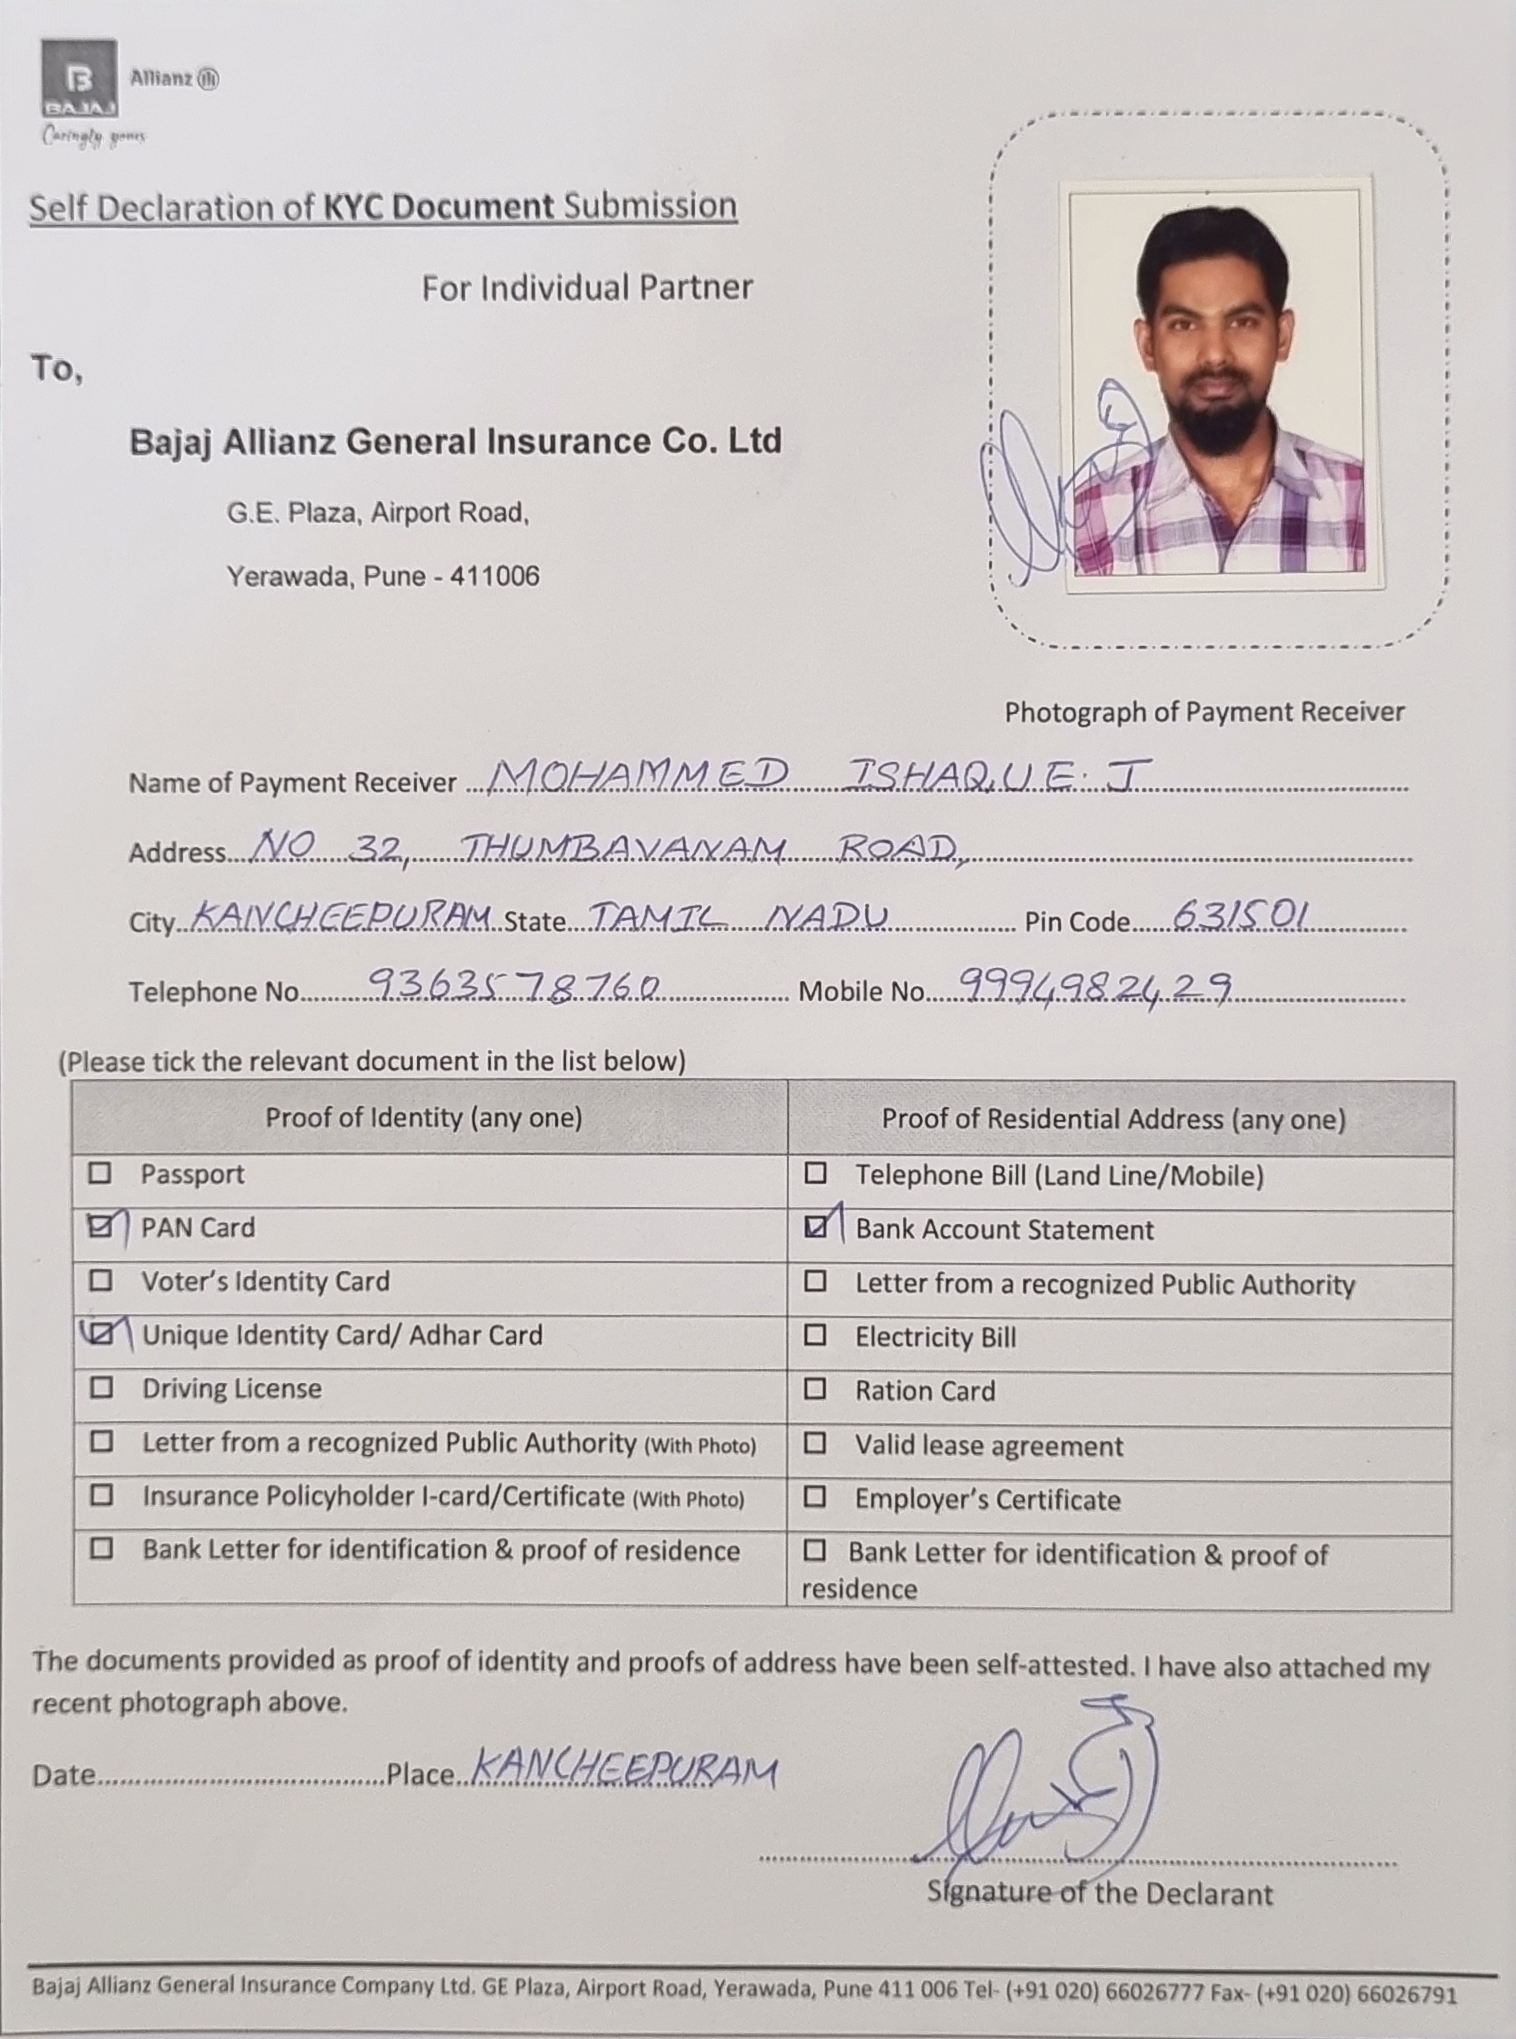 B
BAJAJ
Allianz
Caringly yours
Self Declaration of KYC Document Submission
For Individual Partner
To,
Bajaj Allianz General Insurance Co. Ltd
G.E. Plaza, Airport Road,
Yerawada, Pune - 411006
Photograph of Payment Receiver
Name of Payment Receiver ...MOHAMMED ISHAQUE. J
Address...NO 32, THUMBAVANAM ROAD,
City..KANCHEEPURAM State...TAMIL NADU Pin Code.....631501
Telephone No.....9363578760 Mobile No....9994982429
(Please tick the relevant document in the list below)
Proof of Identity (any one) Proof of Residential Address (any one)
☐ Passport ☐ Telephone Bill (Land Line/Mobile)
☑ PAN Card ☑ Bank Account Statement
☐ Voter's Identity Card ☐ Letter from a recognized Public Authority
☑ Unique Identity Card/ Adhar Card ☐ Electricity Bill
☐ Driving License ☐ Ration Card
☐ Letter from a recognized Public Authority (With Photo) ☐ Valid lease agreement
☐ Insurance Policyholder I-card/Certificate (With Photo) ☐ Employer's Certificate
☐ Bank Letter for identification & proof of residence ☐ Bank Letter for identification & proof of
residence
The documents provided as proof of identity and proofs of address have been self-attested. I have also attached my
recent photograph above.
Date.......................................Place..KANCHEEPURAM
Signature of the Declarant
Bajaj Allianz General Insurance Company Ltd. GE Plaza, Airport Road, Yerawada, Pune 411 006 Tel- (+91 020) 66026777 Fax- (+91 020) 66026791